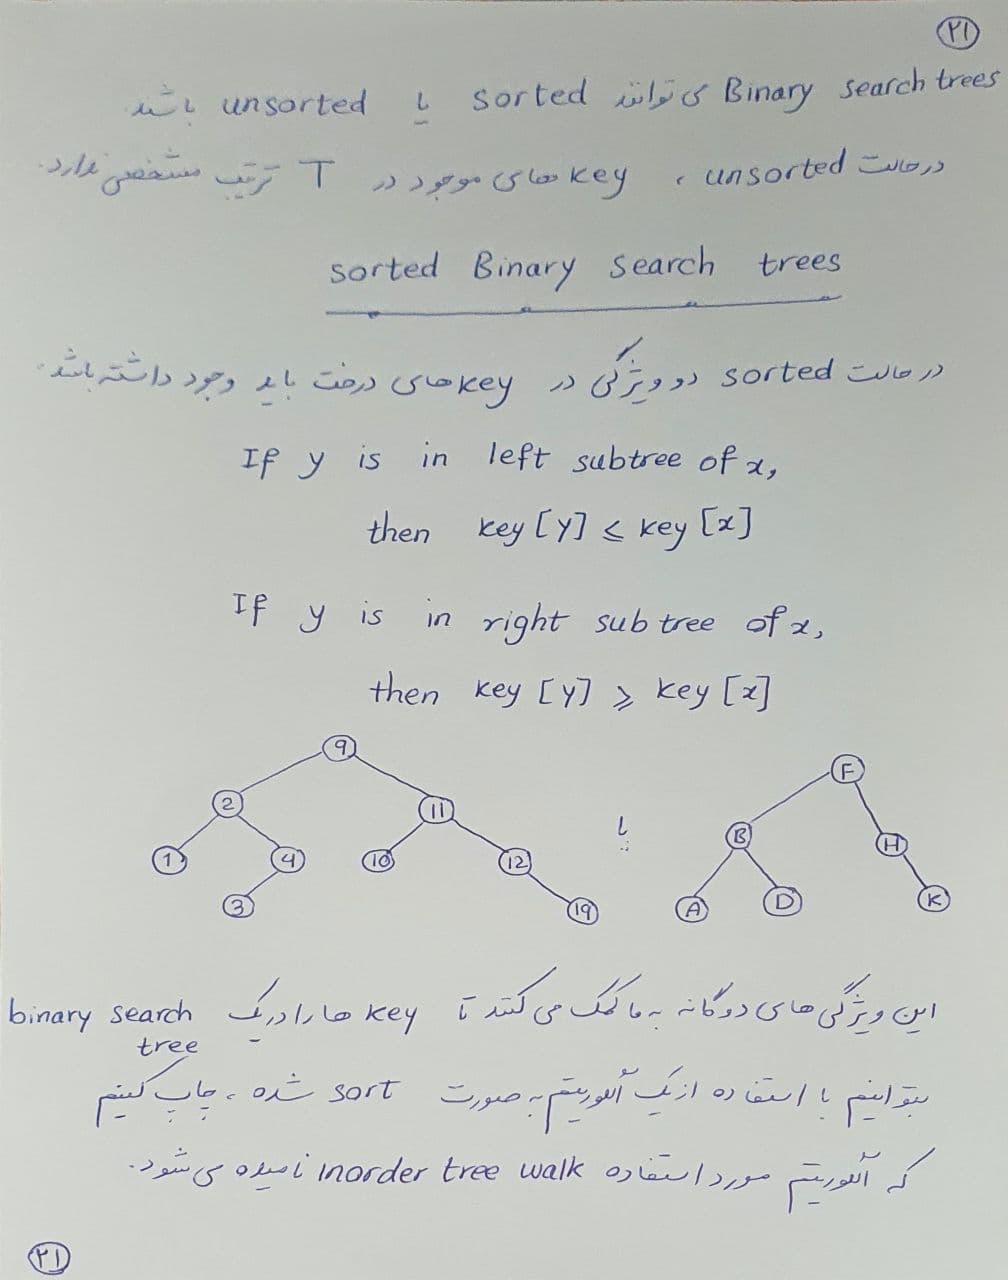 ۲۱
Binary search trees می تواند sorted یا unsorted باشد
درحالت unsorted ، key های موجود در T ترتیب مشخصی ندارد.
sorted Binary search trees
درحالت sorted دو ویژگی در key های درخت باید وجود داشته باشد.
If y is in left subtree of x,
then key [y] ≤ key [x]
If y is in right subtree of x,
then key [y] ≥ key [x]
9
2 11
1 4 10 12
3 19
یا
F
B H
A D K
این ویژگی های دوگانه به ما کمک می کنند تا key ها را در یک binary search tree
بتوانیم با استفاده از یک الگوریتم به صورت sort شده ، چاپ کنیم
که الگوریتم مورد استفاده inorder tree walk نامیده می شود.
۲۱